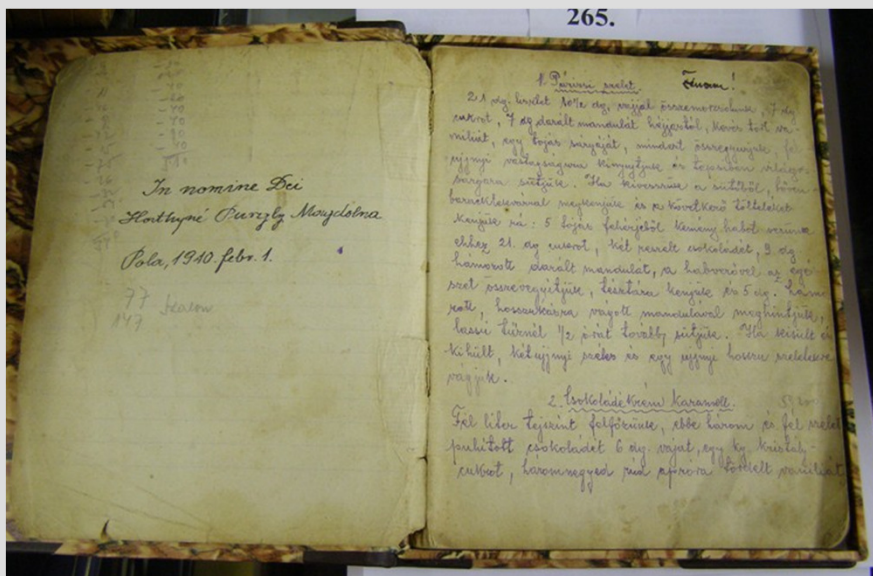 265.
In nomine Dei
Horthyné Purgly Magdolna
Pola, 1910. febr. 1.
77
147
1. Párisi szelet.
21 dg. lisztet 10½ dg. vajjal összemorzsolunk, 7 dg
cukrot, 7 dg darált mandulát héjjastól, kevés tört va-
niliát, egy tojás sárgáját, mindent összegyúrjuk fél
ujjnyi vastagságura kinyujtjuk és tepsiben világos
sárgára sütjük. Ha kivesszük a sütőből, bőven
baracklekvárral megkenjük és a következő tölteléket
kenjük rá: 5 tojás fehérjéből kemény habot verünk
ehhez 21. dg cukrot, két reszelt csokoládét, 9 dg
hámozott darált mandulát, a habverővel az egé-
szet összevegyítjük, tésztára kenjük és 5 dg. hámo-
zott, hosszukásra vágott mandulával meghintjük,
lassú tűznél ½ órát tovább sütjük. Ha kisült és
kihült, két ujjnyi széles és egy ujjnyi hosszu szeletekre
vágjuk.
2. Csokoládékrém Karamell.
Fél liter tejszint felfőzünk, ebbe három és fél szelet
puhított csokoládét 6 dg. vajat, egy kg. kristály-
cukrot, háromnegyed rúd apróra tördelt vaniliát